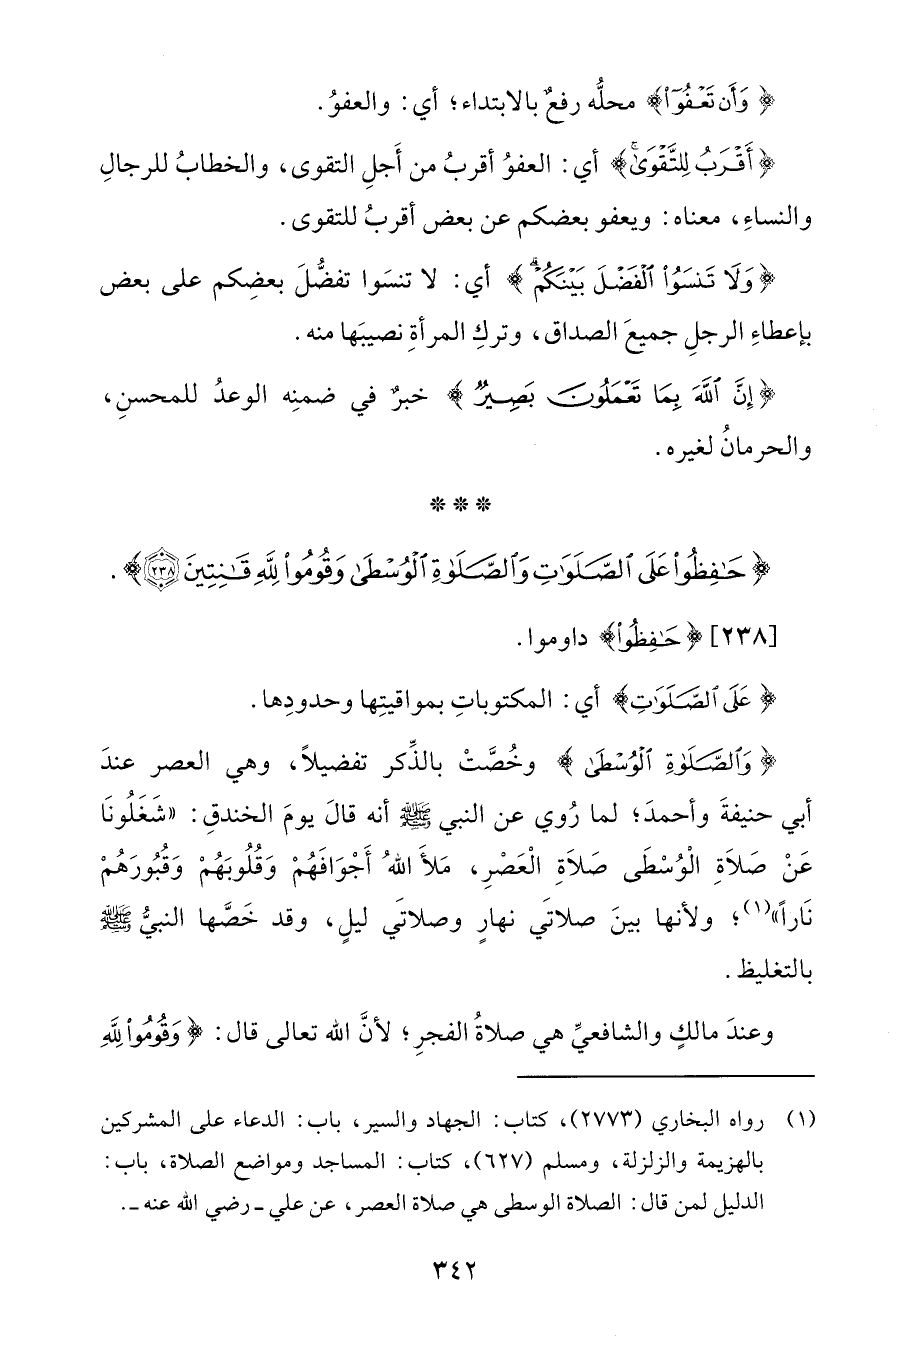 ﴿وَأَن تَعْفُوٓا۟﴾ محلُّه رفعٌ بالابتداء؛ أي: والعفوُ.
﴿أَقْرَبُ لِلتَّقْوَىٰ ۚ﴾ أي: العفوُ أقربُ من أَجلِ التقوى، والخطابُ للرجالِ
والنساءِ، معناه: ويعفو بعضكم عن بعض أقربُ للتقوى.
﴿وَلَا تَنسَوُا۟ ٱلْفَضْلَ بَيْنَكُمْ ۚ﴾ أي: لا تنسَوا تفضُّلَ بعضِكم على بعض
بإعطاءِ الرجلِ جميعَ الصداق، وتركِ المرأةِ نصيبَها منه.
﴿إِنَّ ٱللَّهَ بِمَا تَعْمَلُونَ بَصِيرٌ﴾ خبرٌ في ضمنِه الوعدُ للمحسنِ،
والحرمانُ لغيره.
***
﴿حَـٰفِظُوا۟ عَلَى ٱلصَّلَوَٰتِ وَٱلصَّلَوٰةِ ٱلْوُسْطَىٰ وَقُومُوا۟ لِلَّهِ قَـٰنِتِينَ ٢٣٨﴾.
[٢٣٨] ﴿حَـٰفِظُوا۟﴾ داوموا.
﴿عَلَى ٱلصَّلَوَٰتِ﴾ أي: المكتوباتِ بمواقيتِها وحدودِها.
﴿وَٱلصَّلَوٰةِ ٱلْوُسْطَىٰ﴾ وخُصَّتْ بالذِّكر تفضيلاً، وهي العصر عندَ
أبي حنيفةَ وأحمدَ؛ لما رُوي عن النبي ﷺ أنه قالَ يومَ الخندقِ: «شَغَلُونَا
عَنْ صَلاَةِ الْوُسْطَى صَلاَةِ الْعَصْرِ، مَلأَ اللهُ أَجْوَافَهُمْ وَقُلُوبَهُمْ وَقُبُورَهُمْ
نَاراً»(١)؛ ولأنها بينَ صلاتَي نهارٍ وصلاتَي ليلٍ، وقد خَصَّها النبيُّ ﷺ
بالتغليظ.
وعندَ مالكٍ والشافعيِّ هي صلاةُ الفجرِ؛ لأنَّ الله تعالى قال: ﴿وَقُومُوا۟ لِلَّهِ
(١) رواه البخاري (٢٧٧٣)، كتاب: الجهاد والسير، باب: الدعاء على المشركين
بالهزيمة والزلزلة، ومسلم (٦٢٧)، كتاب: المساجد ومواضع الصلاة، باب:
الدليل لمن قال: الصلاة الوسطى هي صلاة العصر، عن علي ـ رضي الله عنه ـ.
٣٤٢